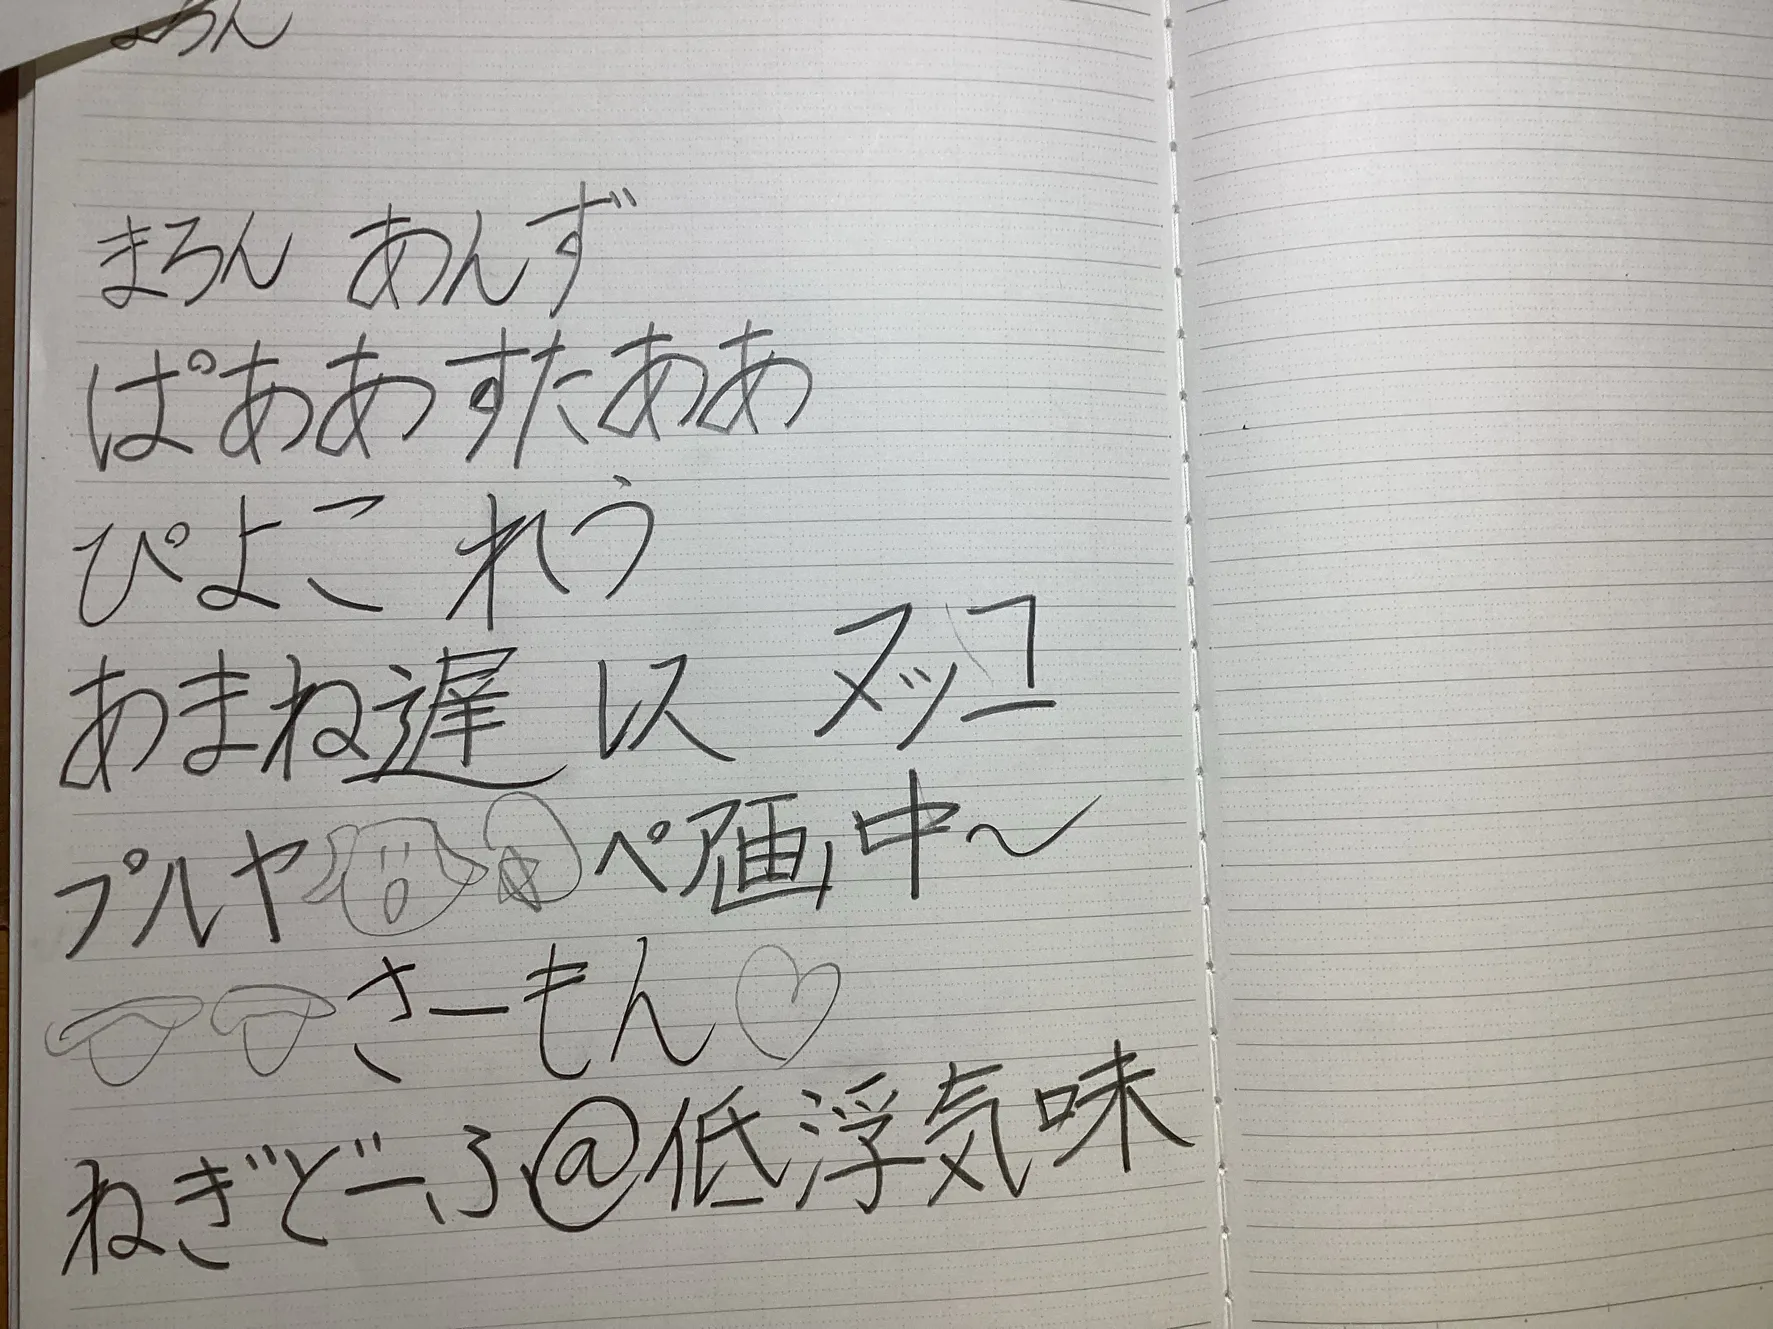 まろん
まろん あんず
ぱああすたああ
ぴよこ れう
あまね遅 レス ヌッコ
プルヤ ペ画中〜
さーもん♡
ねぎどーふ@低浮気味